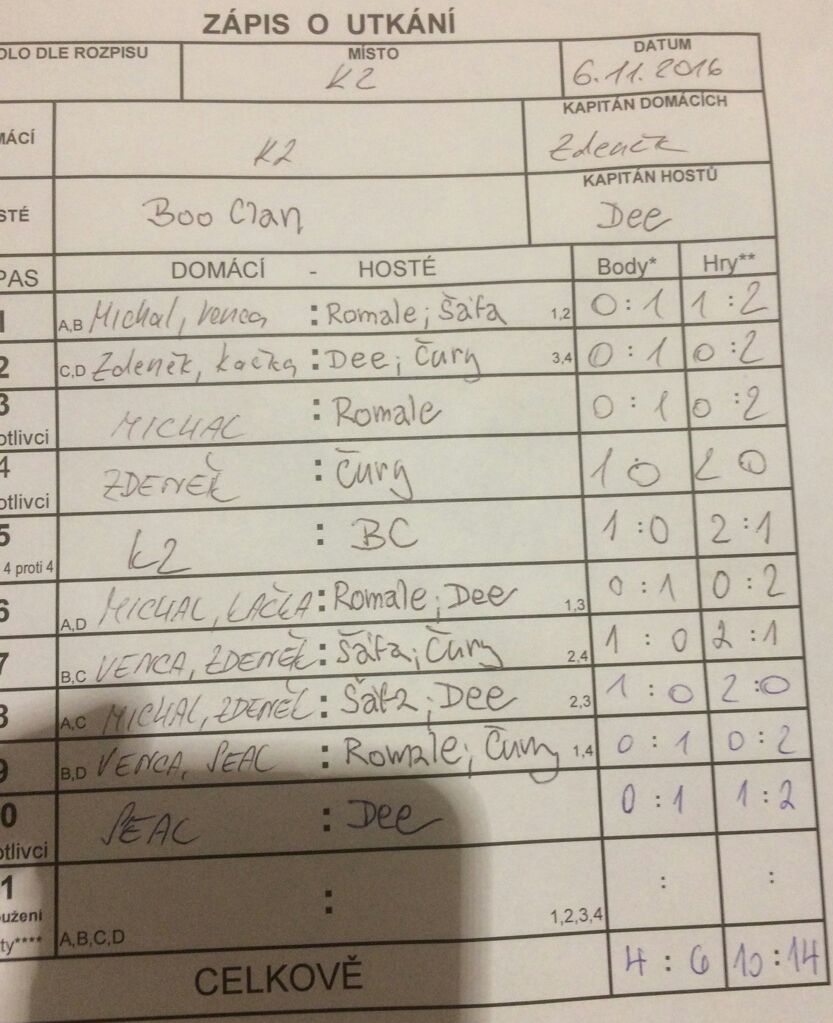 ZÁPIS O UTKÁNÍ
DLO DLE ROZPISU MÍSTO DATUM
K2 6.11.2016
MÁCÍ K2 KAPITÁN DOMÁCÍCH
Zdeněk
STÉ Boo Clan KAPITÁN HOSTŮ
Dee
PAS DOMÁCÍ - HOSTÉ Body* Hry**
1 A,B Michal, Venca : Romale; Šáfa 1,2 0:1 1:2
2 C,D Zdeněk, kačka : Dee; Čury 3,4 0:1 0:2
3 otlivci MICHAL : Romale 0:1 0:2
4 otlivci ZDENĚK : Čury 1 0 2 0
5 4 proti 4 K2 : BC 1:0 2:1
6 A,D MICHAL, KAČKA : Romale; Dee 1,3 0:1 0:2
7 B,C VENCA, ZDENĚK : Šáfa; Čury 2,4 1:0 2:1
8 A,C MICHAL, ZDENĚK : Šáfa; Dee 2,3 1:0 2:0
9 B,D VENCA, PEAC : Romale; Čury 1,4 0:1 0:2
0 otlivci PEAC : Dee 0:1 1:2
1 oužení ty**** A,B,C,D : 1,2,3,4 : :
CELKOVĚ 4:6 10:14